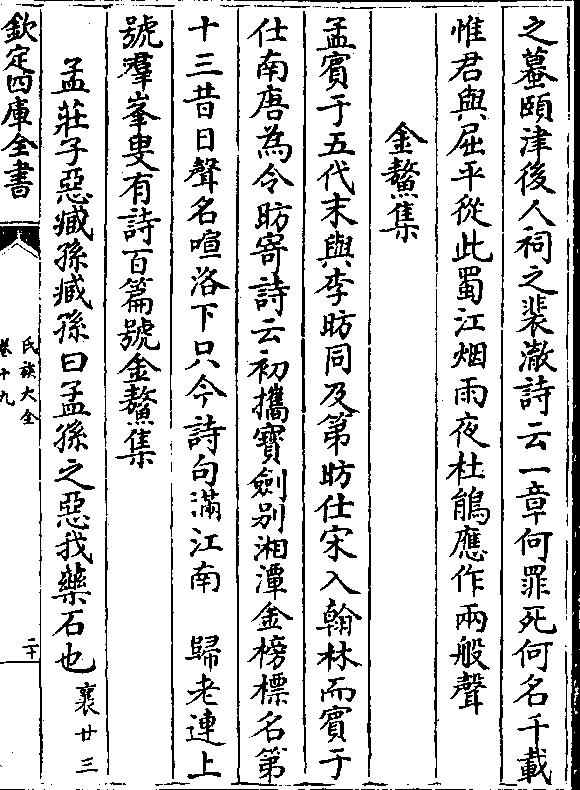 之蟇頤津後人祠之裴澈詩云一章何罪死何名千載
惟君與屈平從此蜀江烟雨夜杜鵑應作兩般聲
金鰲集
孟賓于五代末與李昉同及第昉仕宋入翰林而賓于
仕南唐為令昉寄詩云初攜寶劍别湘潭金榜標名第
十三昔日聲名喧洛下只今詩句滿江南　歸老連上
號羣峯叟有詩百篇號金鰲集
孟莊子惡臧孫臧孫曰孟孫之惡我藥石也襄廿三
欽定四庫全書
氏族大全
卷十九
二十